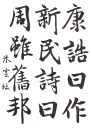 康誥曰作
新民詩曰
周雖舊邦